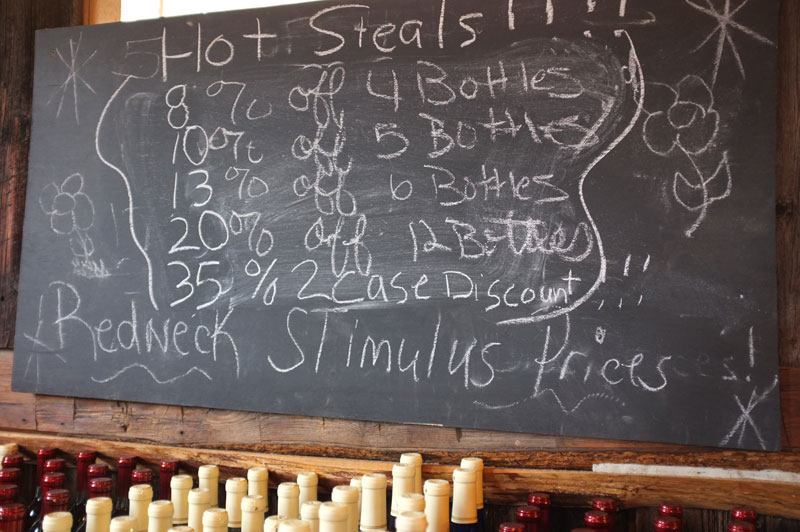 Hot Steals!!!!
8% off 4 Bottles
10% off 5 Bottles
13% off 6 Bottles
20% off 12 Bottles
35% 2 Case Discount!!!
Redneck Stimulus Prices!